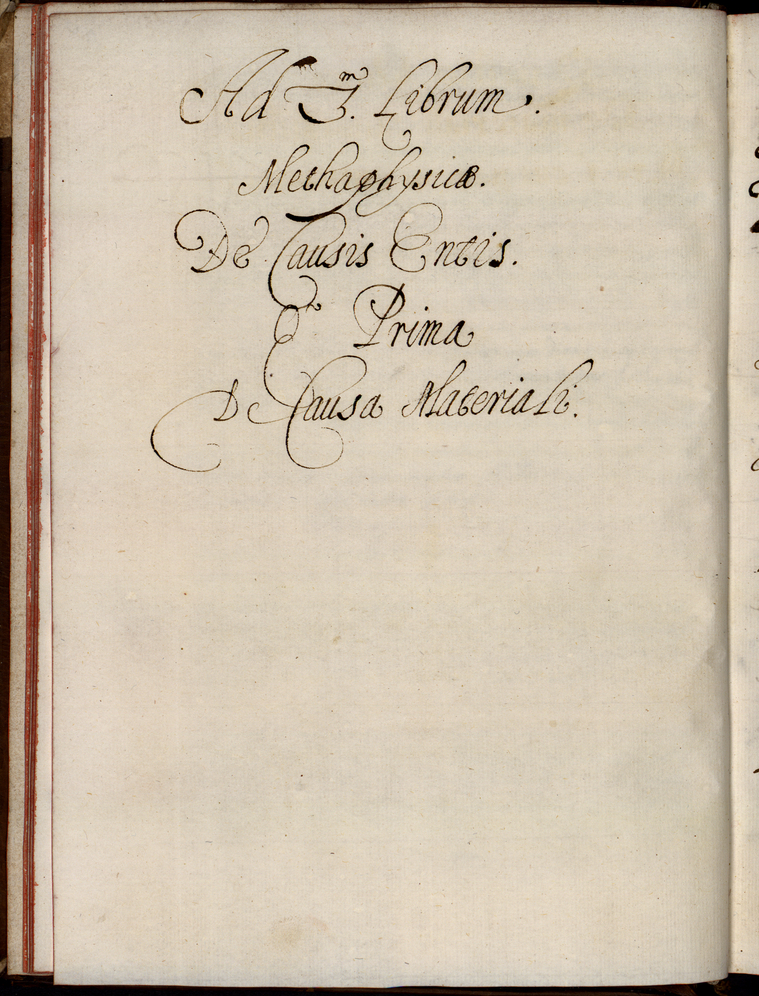 Ad 3.m Librum.
Methaphysicæ.
De Causis Entis.
Et Prima
De Causa Materiali.